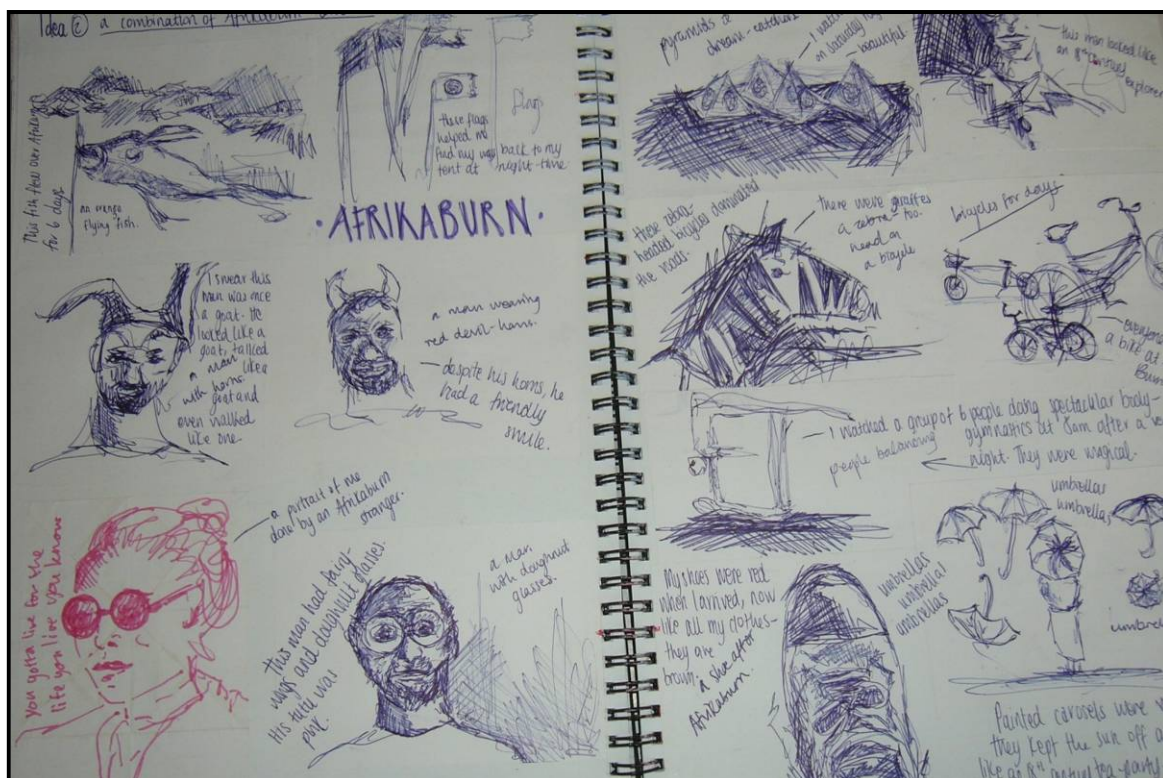 Idea © a combination of Afrikaburn
This fish flew over Afrikaburn
for 6 days
an orange
flying fish.
these flags
helped me
find my way
tent at
flags
back to my
night-time.
· AFRIKABURN ·
I swear this
man was once
a goat. He
looked like a
goat, talked
like a
goat and
even walked
like one.
a man
with horns
a man wearing
red devil-horns.
despite his horns, he
had a friendly
smile.
you gotta live for the
life you live you know
a portrait of me
done by an Afrikaburn
stranger.
This man had fairy-
wings and doughnut glasses.
His tutu was
pink.
a man
with doughnut
glasses.
pyramids &
dream-catchers
I watch
on Saturday
beautiful
this man looked like
an 18th century
explorer
these zebra-
headed bicycles dominated
the roads.
there were giraffes
too.
a zebra-
head on
a bicycle
bicycles for days
a bike at
I watched a group of 6 people doing spectacular body-
gymnastics at 8am after a
night. They were magical.
people balancing
umbrellas
umbrellas
umbrellas
umbrellas!
umbrellas
My shoes were red
when I arrived, now
like all my clothes-
they are
brown.
a shoe after
Afrikaburn.
Painted parasols were
they kept the sun off
like an 18th century tea-party